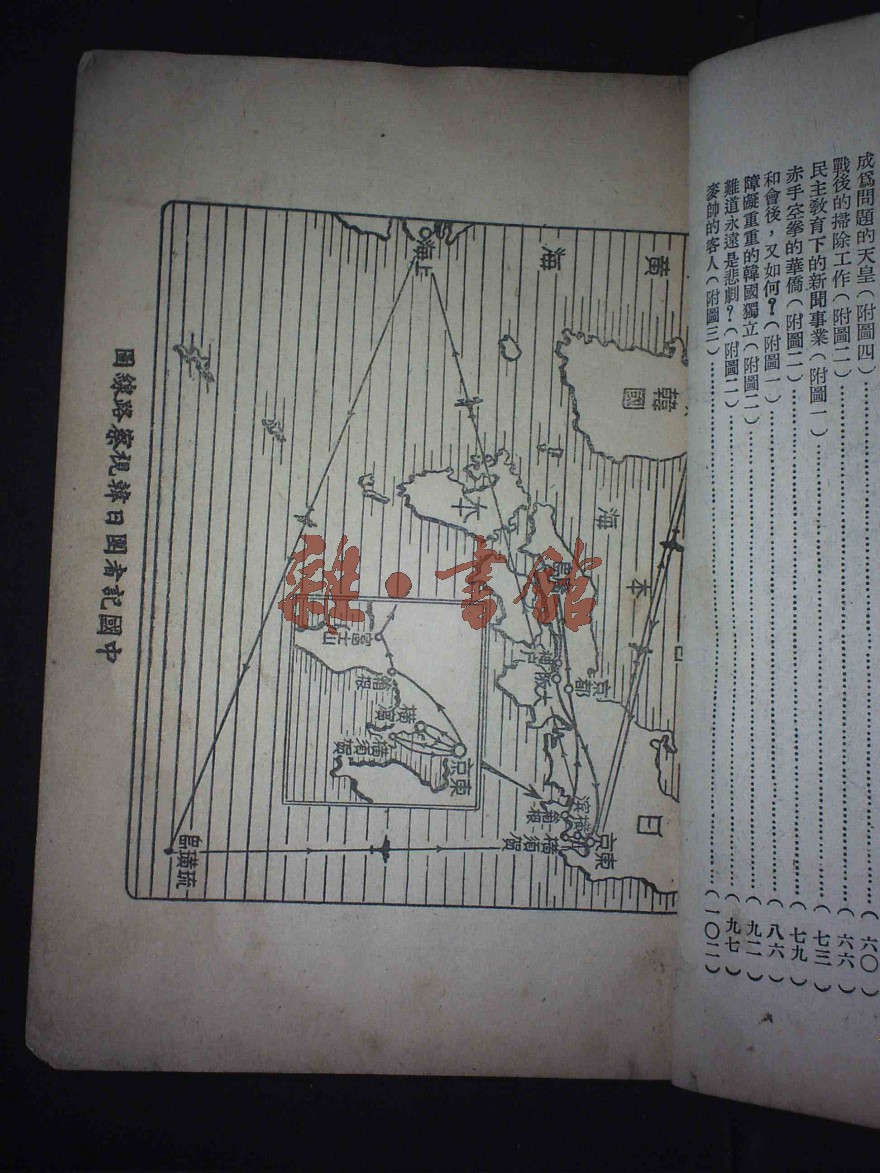 成爲問題的天皇(附圖四)……(六〇)
戰後的掃除工作(附圖二)……(六六)
民主教育下的新聞事業(附圖一)……(七三)
赤手空拳的華僑(附圖二)……(七九)
和會後，又如何？(附圖一)……(八六)
障礙重重的韓國獨立(附圖二)……(九二)
難道永遠是悲劇？(附圖二)……(九七)
麥帥的客人(附圖三)……(一〇二)
中國記者團日韓視察路線圖
黃海
上海
韓國
日本海
日本
廣島
神戶
大阪
京都
箱根
橫須賀
東京
琉璜島
富士山
箱根
橫濱
橫須賀
東京
雜·書館